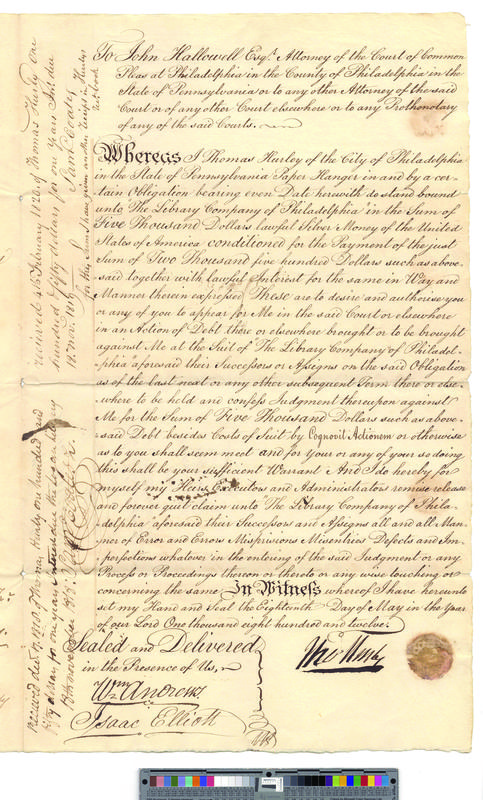 To John Hallowell Esqr. Attorney of the Court of Common
Pleas at Philadelphia in the County of Philadelphia in the
State of Pennsylvania or to any other Attorney of the said
Court or of any other Court elsewhere or to any Prothonotary
of any of the said Courts.
Whereas I Thomas Hurley of the City of Philadelphia
in the State of Pennsylvania Paper Hanger in and by a cer-
tain Obligation bearing even Date herewith do stand bound
unto "The Library Company of Philadelphia" in the Sum of
Five Thousand Dollars lawful Silver Money of the United
States of America conditioned for the Payment of the just
Sum of Two Thousand five hundred Dollars such as above-
said together with lawful Interest for the same in Way and
Manner therein expressed These are to desire and authorise you
or any of you to appear for Me in the said Court or elsewhere
in an Action of Debt there or elsewhere brought or to be brought
against Me at the Suit of "The Library Company of Philadel-
phia" aforesaid their Successors or Assigns on the said Obligation
as of the last next or any other subsequent Term there or else-
where to be held and confess Judgment thereupon against
Me for the Sum of Five Thousand Dollars such as above-
said Debt besides Costs of Suit by Cognovit Actionem or otherwise
as to you shall seem meet and for your or any of your so doing
this shall be your sufficient Warrant And I do hereby for
myself my Heirs Executors and Administrators remise release
and forever quit claim unto "The Library Company of Phila-
delphia" aforesaid their Successors and Assigns all and all Man-
ner of Error and Errors Misprisions Misentries Defects and Im-
perfections whatever in the entering of the said Judgment or any
Process or Proceedings thereon or thereto or any wise touching or
concerning the same In Witness whereof I have hereunto
set my Hand and Seal the Eighteenth Day of May in the Year
of our Lord One thousand eight hundred and twelve.
Sealed and Delivered
in the Presence of Us,
Tho Hurley
Wm. Andrews
Isaac Elliott
received 4th February 1820 of Thomas Hurley One
hundred & fifty dollars for one years Int. due
18 Nov. 1819
for this Sum I have given another receipt in Hurleys
Thomas Hurley one hundred and
fifty dollars for one years Interest due the